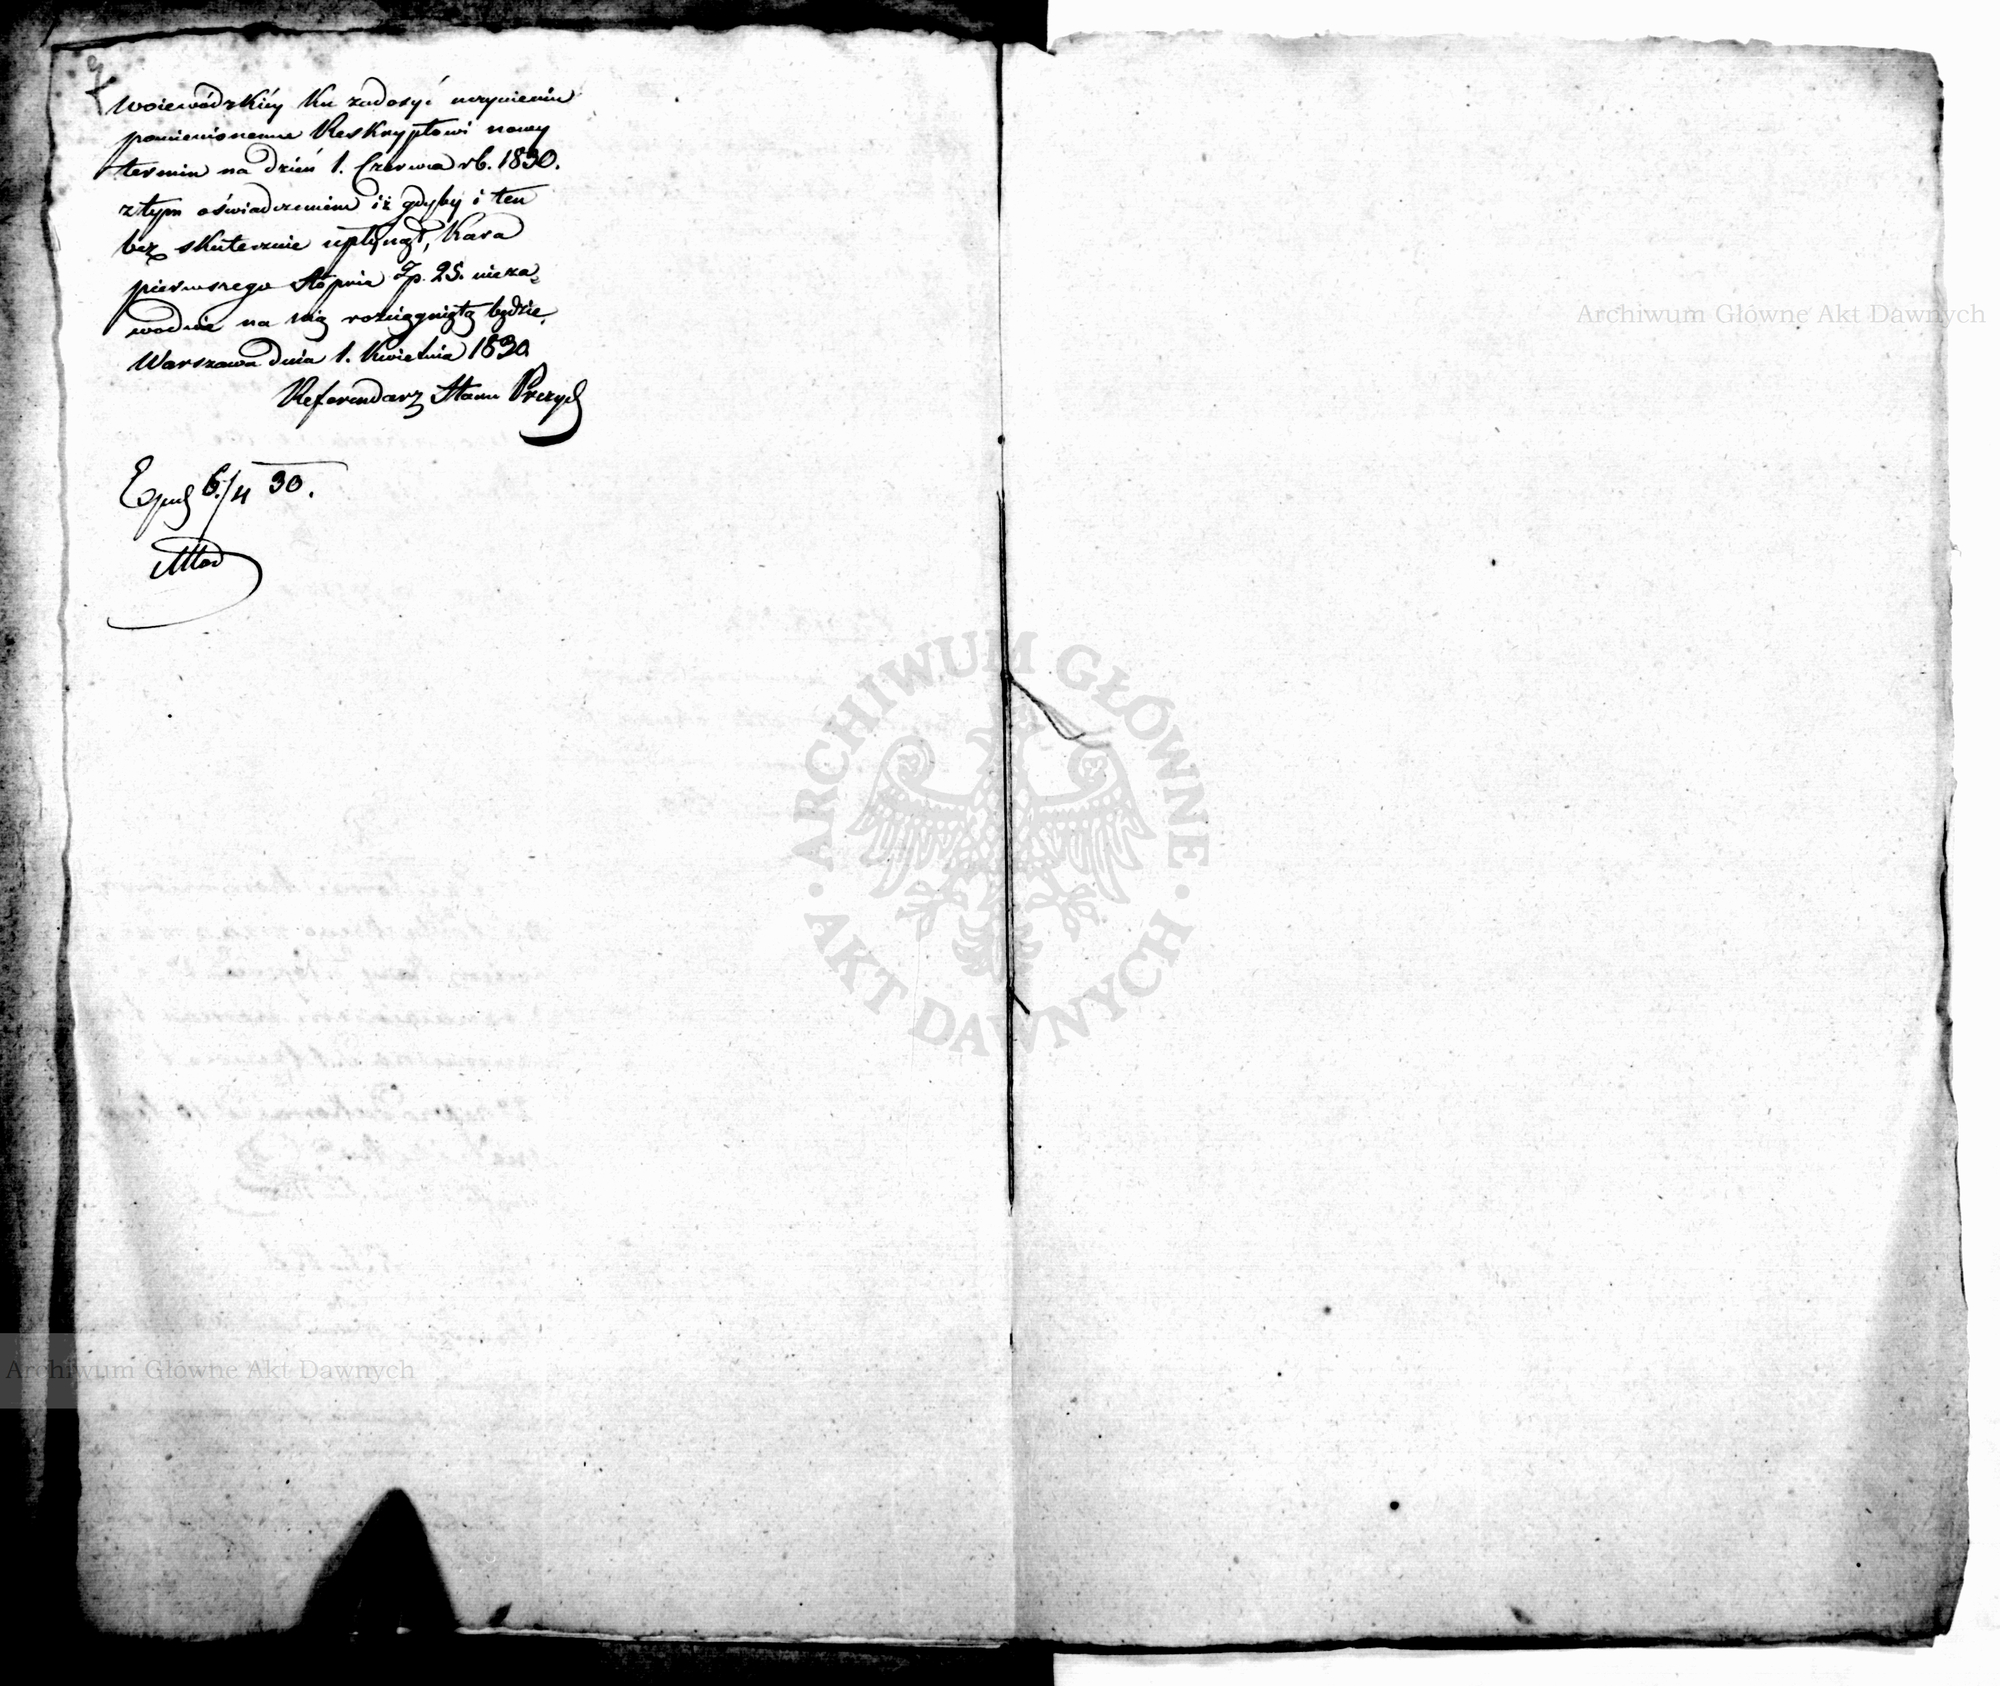 Woiewódzkiéy ku zadosyć uczynieniu
pomienionemu Reskryptowi nowy
termin na dzień 1. Czerwca rb. 1830.
z tym oświadczeniem iż gdyby i ten
bez skutecznie upłynął, kara
pierwszego Stopnia Zp. 25. nieza-
wodnie na nią rozciągniętą będzie,
Warszawa dnia 1. Kwietnia 1830.
Referendarz Stanu Prezyd
6./4 30.
Archiwum Główne Akt Dawnych
ARCHIWUM GŁÓWNE · AKT DAWNYCH ·
Archiwum Główne Akt Dawnych